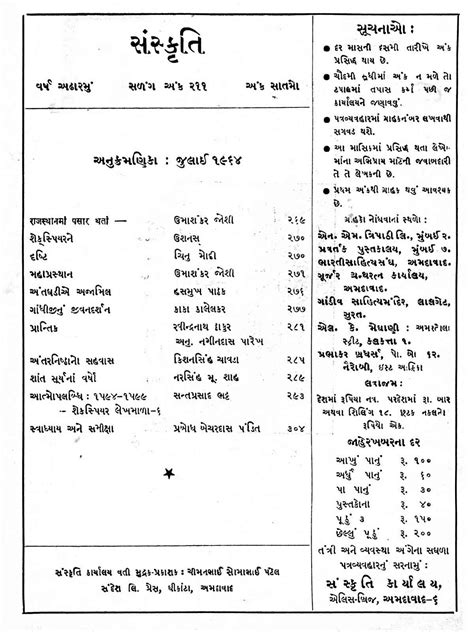 સંસ્કૃતિ
વર્ષ અઢારમું સળંગ અંક ૨૧૧ અંક સાતમો
અનુક્રમણિકા : જુલાઈ ૧૯૬૪
રાજસ્થાનમાં પસાર થતાં — ઉમાશંકર જોશી ૨૬૯
શેક્સ્પિયરને ઉશનસ્ ૨૭૦
દૃષ્ટિ ચિનુ મોદી ૨૭૦
મહાપ્રસ્થાન ઉમાશંકર જોશી ૨૭૧
અંતઘડીએ અજામિલ હસમુખ પાઠક ૨૭૬
ગાંધીજીનું જીવનદર્શન કાકા કાલેલકર ૨૭૭
પ્રાન્તિક રવીન્દ્રનાથ ઠાકુર ૨૮૧
અનુ. નગીનદાસ પારેખ
અંતરનિષ્ઠાનો સહવાસ કિશનસિંહ ચાવડા ૨૮૫
શાંત સૂર્યનાં વર્ષો નરસિંહ મૂ. શાહ ૨૮૯
આત્મોપલબ્ધિ : ૧૫૯૪-૧૫૯૯ સન્તપ્રસાદ ભટ્ટ ૨૯૩
- શેક્સપિયર લેખમાળા-૬
સ્વાધ્યાય અને સમીક્ષા પ્રબોધ બેચરદાસ પંડિત ૩૦૪
સંસ્કૃતિ કાર્યાલય વતી મુદ્રક-પ્રકાશક : ચીમનભાઈ સોમાભાઈ પટેલ
સંદેશ લિ. પ્રેસ, ઘીકાંટા, અમદાવાદ
સૂચનાઓ :
● દર માસની દસમી તારીખે અંક
પ્રસિદ્ધ થાય છે.
● ચૌદમી સુધીમાં અંક ન મળે તો
ટપાલમાં તપાસ કર્યા પછી જ
કાર્યાલયને જણાવવું.
● પત્રવ્યવહારમાં ગ્રાહકનંબર લખવાથી
સગવડ થશે.
● આ માસિકમાં પ્રસિદ્ધ થતા લેખો-
માંના અભિપ્રાય માટેની જવાબદારી
તે તે લેખકની છે.
● પ્રથમ અંકથી ગ્રાહક થવું આવશ્યક
છે.
ગ્રાહકો નોંધવાનાં સ્થળો :
એન. એમ. ત્રિપાઠી લિ., મુંબઈ ૨.
પ્રવર્તક પુસ્તકાલય, મુંબઈ ૭.
ભારતીસાહિત્યસંઘ, અમદાવાદ.
ગૂર્જર ગ્રન્થરત્ન કાર્યાલય,
અમદાવાદ.
ગાંડીવ સાહિત્યમંદિર, લાલગેટ,
સુરત.
એલ. કે. મેઘાણી : અમરતોલા
સ્ટ્રીટ, કલકત્તા ૧.
પ્રભાકર બ્રધર્સ, પો. બો. ૧૨.
નૈરોબી, ઈસ્ટ આફ્રિકા
લવાજમ :
દેશમાં રૂપિયા નવ. પરદેશમાં રૂ. બાર
અથવા શિલિંગ ૧૮. છૂટક નકલનો
રૂપિયો એક.
જાહેરખબરના દર
આખું પાનું રૂ. ૧૦૦
અર્ધું પાનું રૂ. ૬૦
પા પાનું રૂ. ૩૦
પુસ્તકના રૂ. ૪૦
પૂઠું ૩ રૂ. ૧૫૦
છેલ્લું પૂઠું રૂ. ૨૦૦
તંત્રી અને વ્યવસ્થા અંગેના સઘળા
પત્રવ્યવહારનું સરનામું :
સંસ્કૃતિ કાર્યાલય,
એલિસ-બ્રિજ, અમદાવાદ-૬